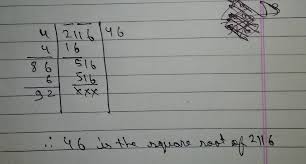 4 | 2116 | 46
4 | 16
86 | 516
6 | 516
92 | xxx
∴ 46 is the square root of 2116